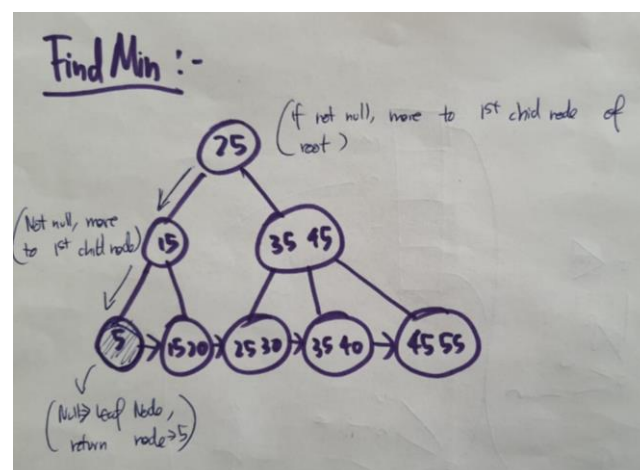 Find Min :-
(if not null, move to 1st child node of
root)
25
(Not null, move
to 1st child node)
15
35 45
5
15 20
25 30
35 40
45 55
(Null → Leaf Node,
return node → 5)